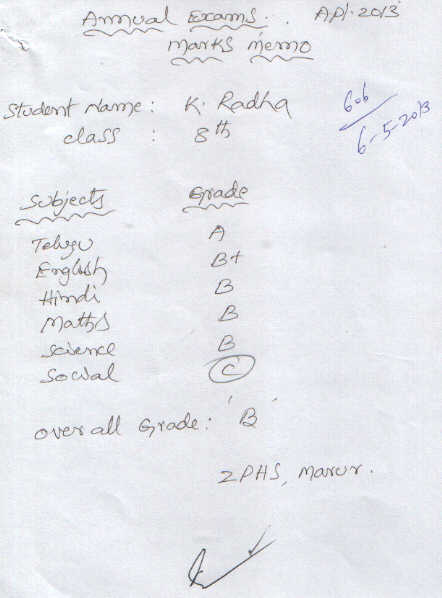 Annual Exams. Apl. 2013
Marks Memo
Student Name: K. Radha
class : 8th
606
6-5-2013
Subjects Grade
Telugu A
English B+
Hindi B
Maths B
Science B
Social C
over all Grade: 'B'
ZPHS, Marur.